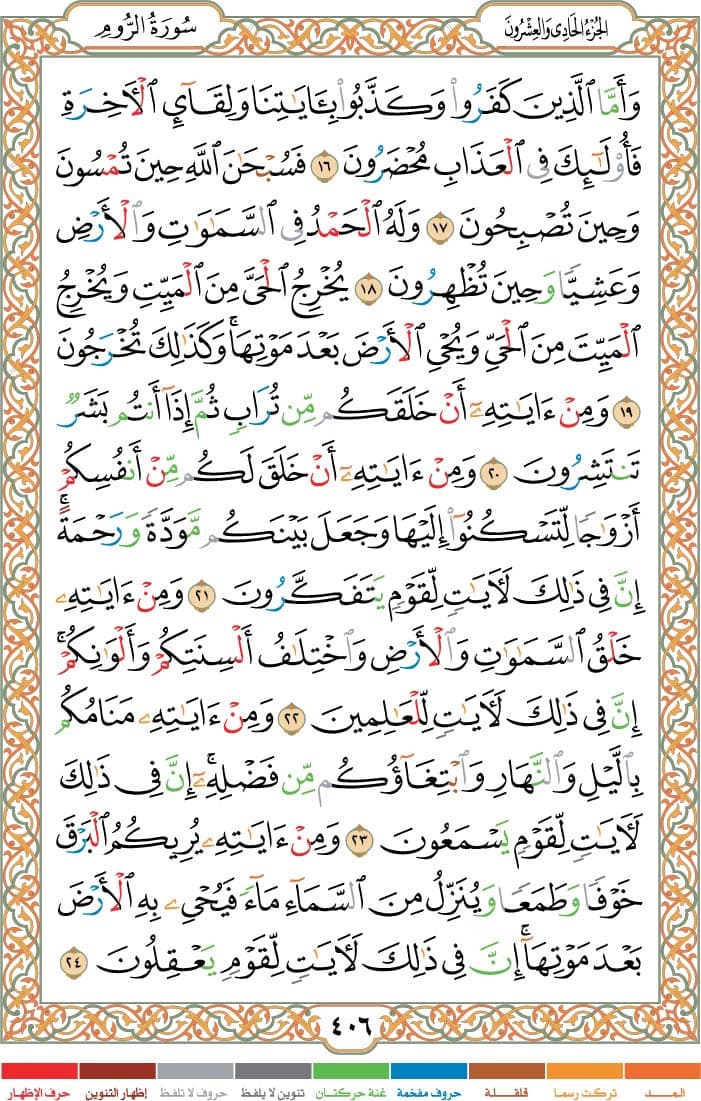 الجزء الحادي والعشرون
سورة الروم
وَأَمَّا ٱلَّذِينَ كَفَرُوا۟ وَكَذَّبُوا۟ بِـَٔايَـٰتِنَا وَلِقَآئِ ٱلْـَٔاخِرَةِ
فَأُو۟لَـٰٓئِكَ فِى ٱلْعَذَابِ مُحْضَرُونَ ١٦ فَسُبْحَـٰنَ ٱللَّهِ حِينَ تُمْسُونَ
وَحِينَ تُصْبِحُونَ ١٧ وَلَهُ ٱلْحَمْدُ فِى ٱلسَّمَـٰوَٰتِ وَٱلْأَرْضِ
وَعَشِيًّا وَحِينَ تُظْهِرُونَ ١٨ يُخْرِجُ ٱلْحَىَّ مِنَ ٱلْمَيِّتِ وَيُخْرِجُ
ٱلْمَيِّتَ مِنَ ٱلْحَىِّ وَيُحْىِ ٱلْأَرْضَ بَعْدَ مَوْتِهَا ۚ وَكَذَٰلِكَ تُخْرَجُونَ
١٩ وَمِنْ ءَايَـٰتِهِۦٓ أَنْ خَلَقَكُم مِّن تُرَابٍ ثُمَّ إِذَآ أَنتُم بَشَرٌ
تَنتَشِرُونَ ٢٠ وَمِنْ ءَايَـٰتِهِۦٓ أَنْ خَلَقَ لَكُم مِّنْ أَنفُسِكُمْ
أَزْوَٰجًا لِّتَسْكُنُوٓا۟ إِلَيْهَا وَجَعَلَ بَيْنَكُم مَّوَدَّةً وَرَحْمَةً ۚ
إِنَّ فِى ذَٰلِكَ لَـَٔايَـٰتٍ لِّقَوْمٍ يَتَفَكَّرُونَ ٢١ وَمِنْ ءَايَـٰتِهِۦ
خَلْقُ ٱلسَّمَـٰوَٰتِ وَٱلْأَرْضِ وَٱخْتِلَـٰفُ أَلْسِنَتِكُمْ وَأَلْوَٰنِكُمْ ۚ
إِنَّ فِى ذَٰلِكَ لَـَٔايَـٰتٍ لِّلْعَـٰلِمِينَ ٢٢ وَمِنْ ءَايَـٰتِهِۦ مَنَامُكُم
بِٱلَّيْلِ وَٱلنَّهَارِ وَٱبْتِغَآؤُكُم مِّن فَضْلِهِۦٓ ۚ إِنَّ فِى ذَٰلِكَ
لَـَٔايَـٰتٍ لِّقَوْمٍ يَسْمَعُونَ ٢٣ وَمِنْ ءَايَـٰتِهِۦ يُرِيكُمُ ٱلْبَرْقَ
خَوْفًا وَطَمَعًا وَيُنَزِّلُ مِنَ ٱلسَّمَآءِ مَآءً فَيُحْىِۦ بِهِ ٱلْأَرْضَ
بَعْدَ مَوْتِهَآ ۚ إِنَّ فِى ذَٰلِكَ لَـَٔايَـٰتٍ لِّقَوْمٍ يَعْقِلُونَ ٢٤
٤٠٦
المـــد تركت رسما قلقـلة حروف مفخمة غنة حركتان تنوين لا يلفظ حروف لا تلفظ إظهار التنوين حرف الإظهار